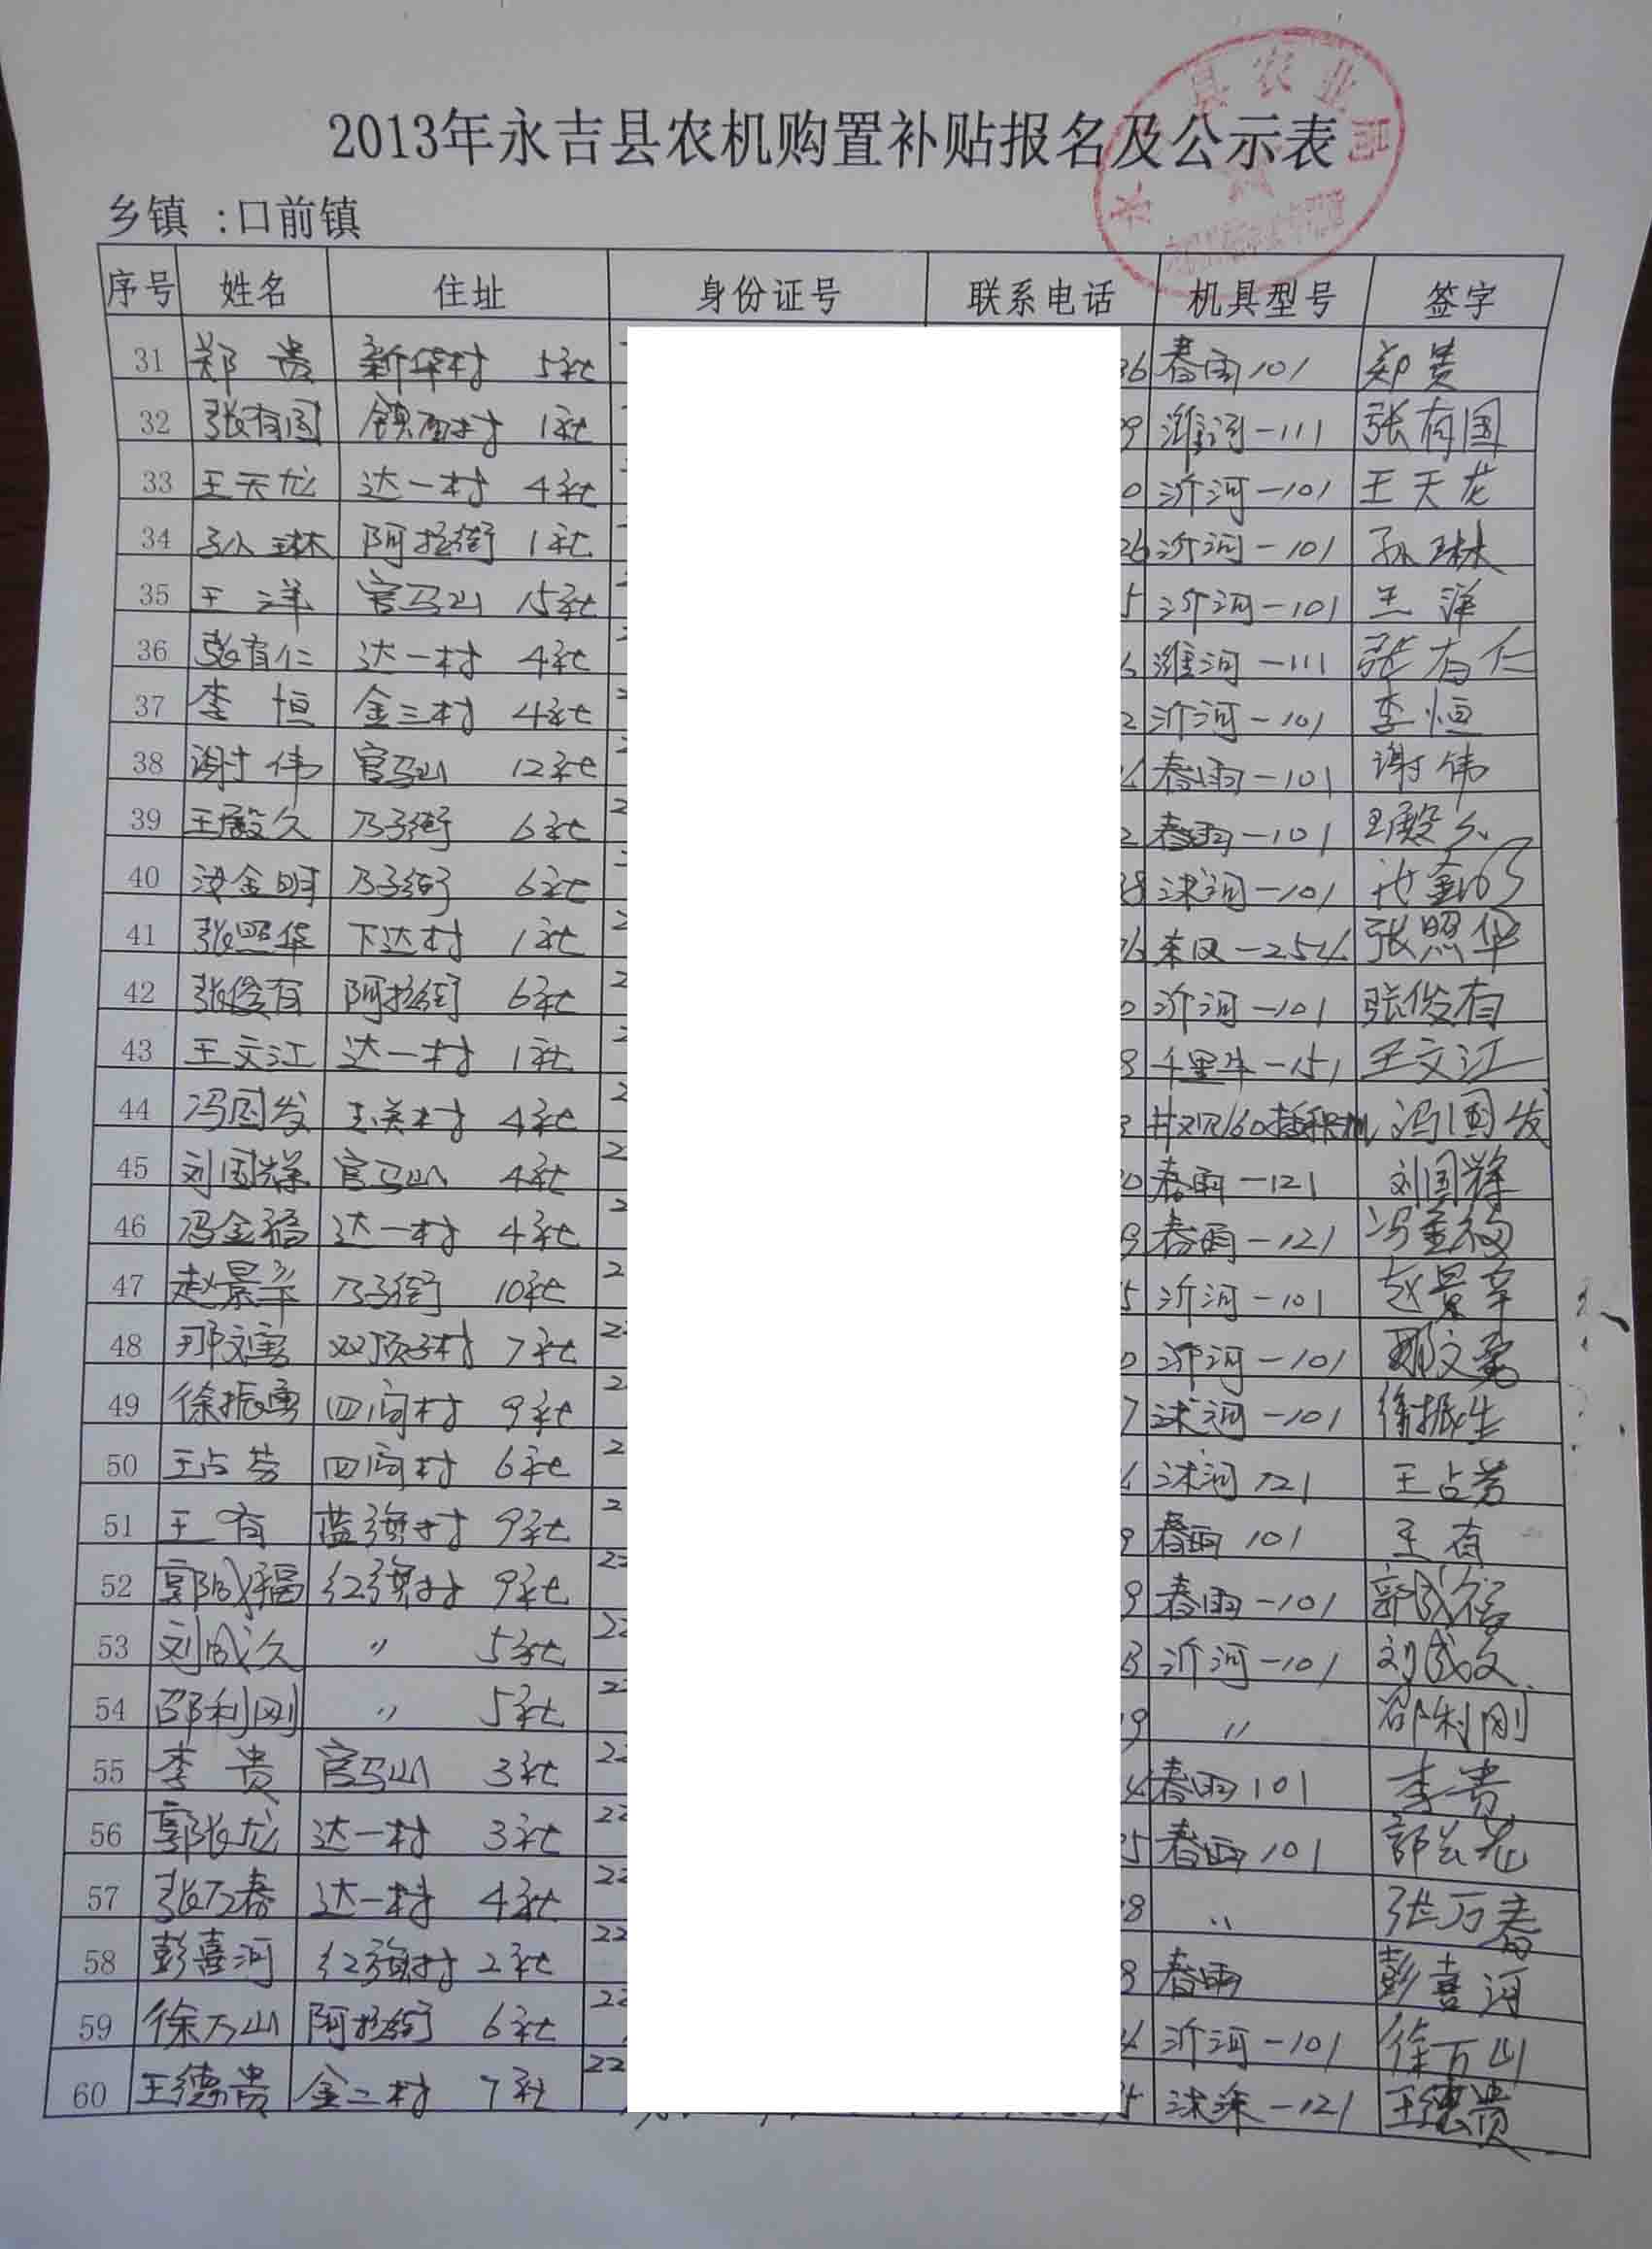 县农业局
2013年永吉县农机购置补贴报名及公示表
乡镇 :口前镇
序号 姓名 住址 身份证号 联系电话 机具型号 签字
31 郑贵 新华村 5社 36 春雨101 郑贵
32 张有国 镇西村 1社 9 潍河-111 张有国
33 王天龙 达一村 4社 0 沂河-101 王天龙
34 孙琳 阿拉街 1社 26 沂河-101 孙琳
35 王洋 官马山 15社 5 沂河-101 王洋
36 张有仁 达一村 4社 潍河-111 张有仁
37 李恒 金三村 4社 2 沂河-101 李恒
38 谢伟 官马山 12社 春雨-101 谢伟
39 王殿久 乃子街 6社 2 2 春雨-101 王殿久
40 金明 乃子街 6社 8 沭河-101 金明
41 张照华 下达村 1社 2 6 -254 张照华
42 张俊有 阿拉街 6社 2 沂河-101 张俊有
43 王文江 达一村 1社 2 8 千里牛-151 王文江
44 冯国发 村 4社 2 3 冯国发
45 刘国辉 官马山 4社 2 0 春雨-121 刘国辉
46 冯金福 达一村 4社 2 9 春雨-121 冯金福
47 赵景辛 乃子街 10社 2 5 沂河-101 赵景辛
48 那文 双顶子村 7社 2 沂河-101 那文
49 徐振 四间村 9社 2 7 沭河-101 徐振生
50 王占芳 四间村 6社 2 沭河121 王占芳
51 王有 蓝旗村 9社 2 9 春雨101 王有
52 郭成福 红旗村 9社 22 9 春雨-101 郭成福
53 刘成 〃 5社 22 3 沂河-101 刘成
54 邵利刚 〃 5社 2 9 〃 邵利刚
55 李贵 官马山 3社 22 4 春雨101 李贵
56 郭长龙 达一村 3社 22 5 春雨101 郭长龙
57 张万春 达一村 4社 22 8 〃 张万春
58 彭喜河 红旗村 2社 22 8 春雨 彭喜河
59 徐万山 阿拉街 6社 22 沂河-101 徐万山
60 王德贵 金二村 7社 22 5 沭河-121 王德贵